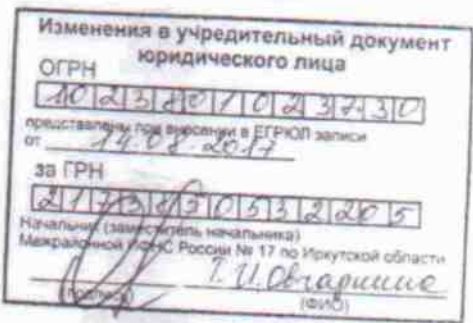 Изменения в учредительный документ
юридического лица
ОГРН
1023801023730
представлены при внесении в ЕГРЮЛ записи
от 14.08.2017
за ГРН
2173850532205
Начальник (заместитель начальника)
Межрайонной ИФНС России № 17 по Иркутской области
Т. И.
(подпись) (ФИО)